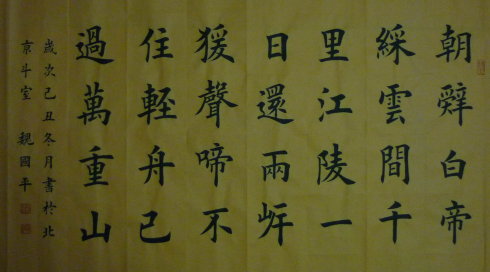 朝辤白帝
綵雲間千
里江陵一
日還兩岸
猨聲啼不
住輕舟已
過萬重山
歲次己丑冬月書於北
京斗室 魏國平